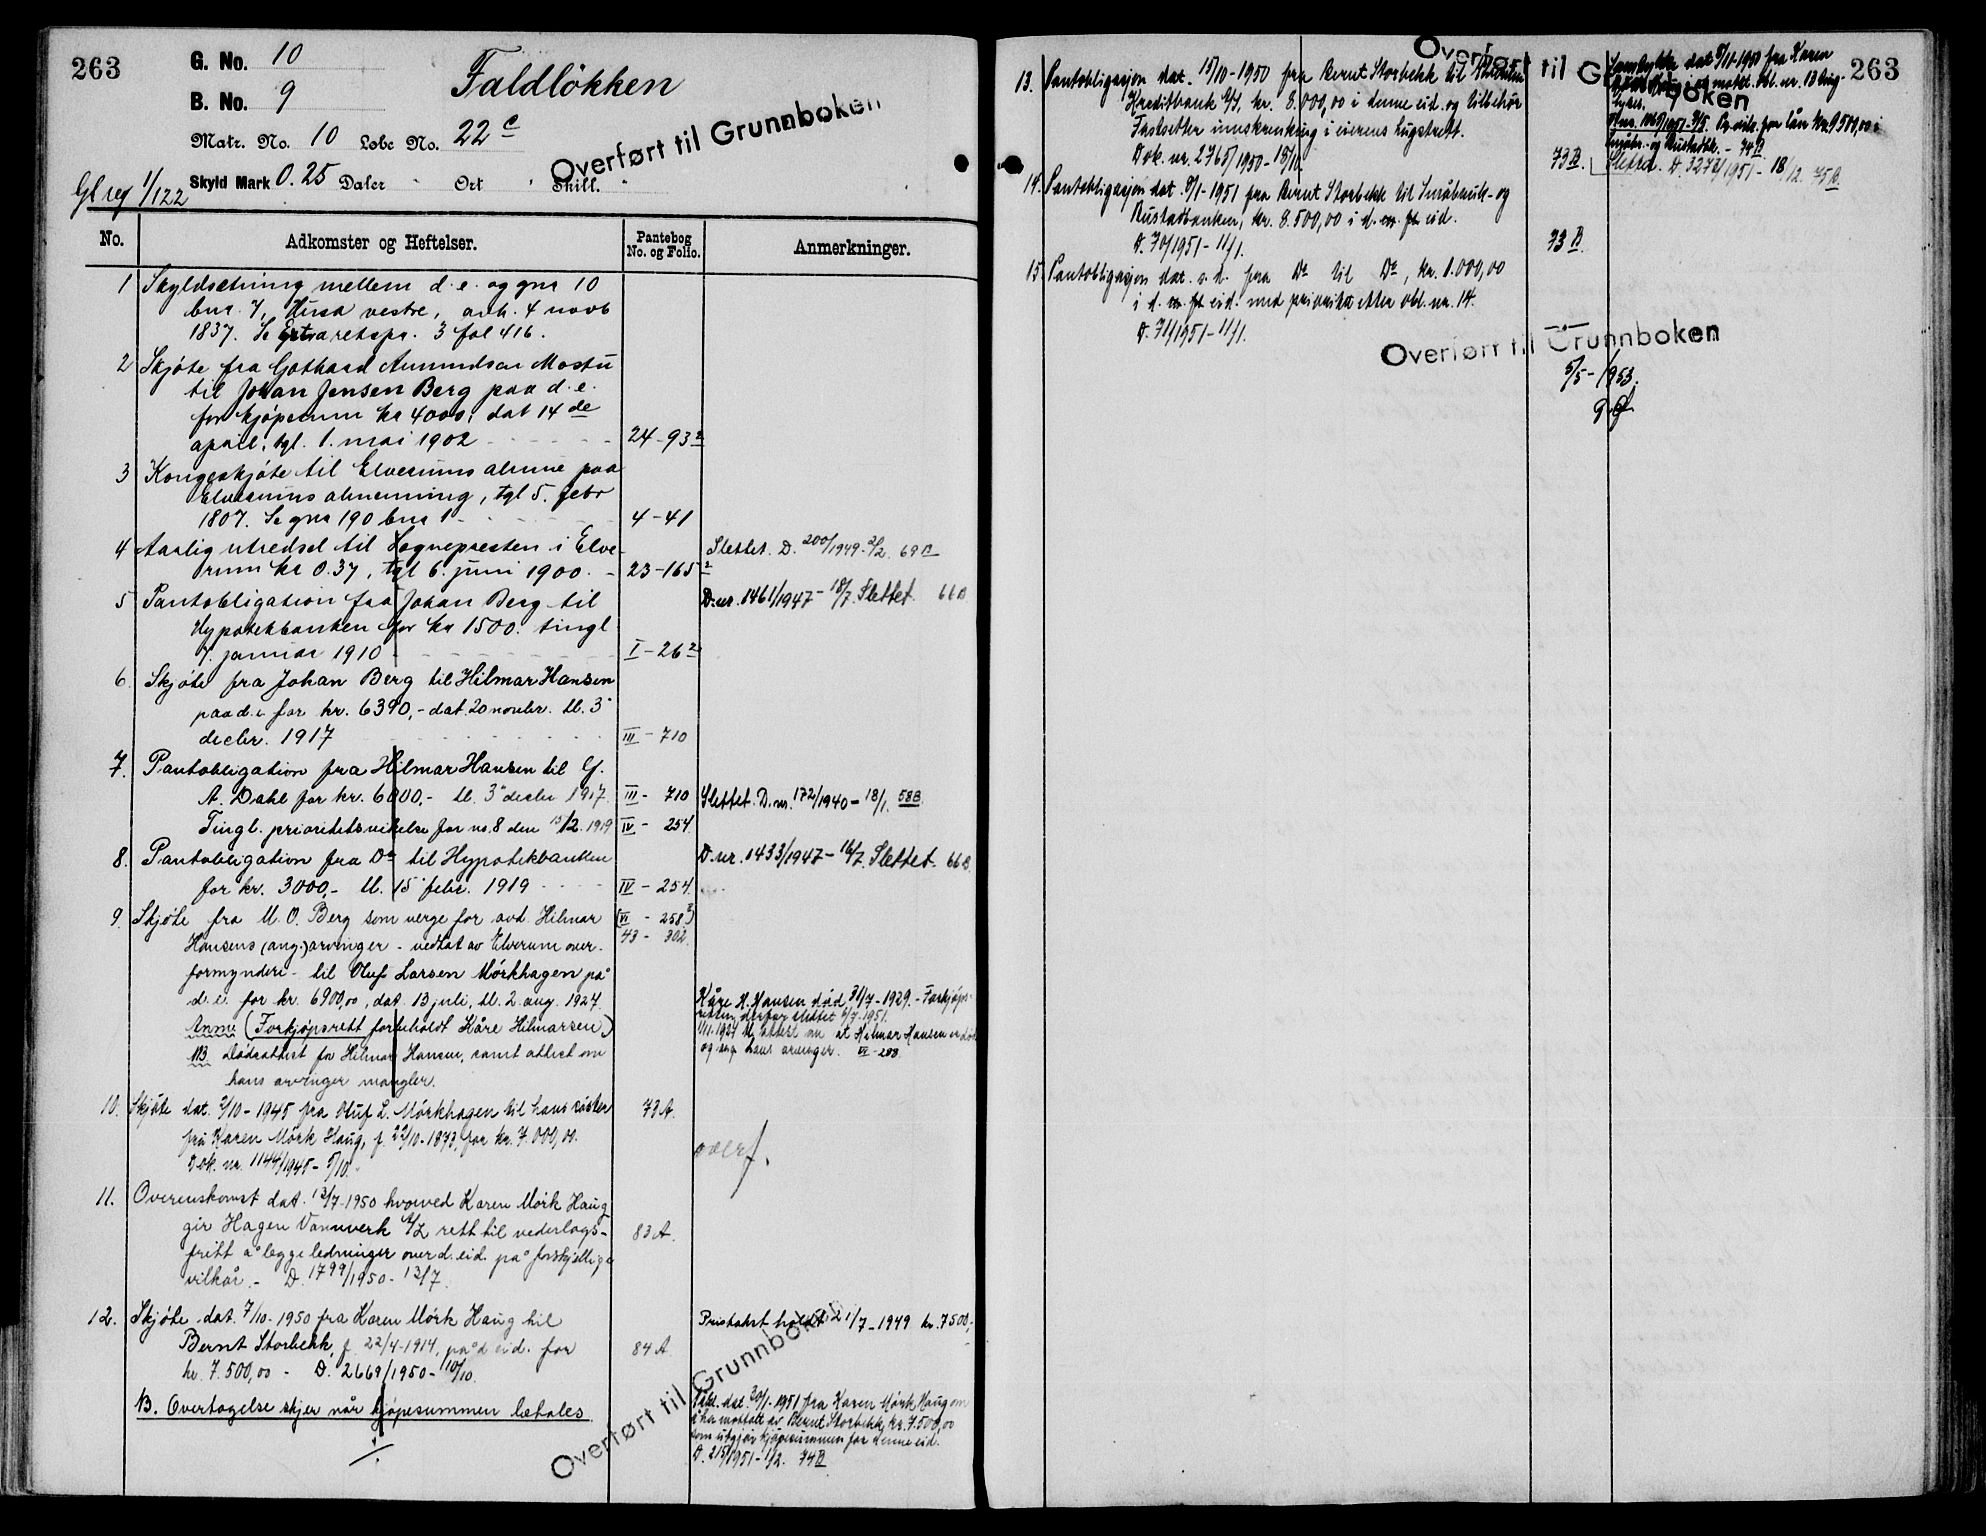 263
G. No. 10
Faldløkken
B. No. 9
Matr. No. 10 Løbe No. 22 c
Overført til Grunnboken
Skyld Mark 0.25 Daler " Ort " Skill. "
Gl reg 1/122
No. Adkomster og Heftelser. Pantebog No. og Folio. Anmerkninger.
1 Skyldsætning mellem d. e. og gno 10
bno 7, vestre, 4 novb
1837. Se Extraretspr. 3 fol 416.
2 Skjøte fra Gothard Amundsen Mostu
til Johan Jensen Berg paa d. e.
for kjøpesum kr 4000, dat 14 de
april, tgl. 1. mai 1902 24-93 2
3 Kongeskjøte til Elverums almue paa
Elverums almenning, tgl 5. febr
1807. Se gno 190 bno 1 4-41
4 Aarlig utredsel til Sognepresten i Elve- Slettet. D. 200/1949-2/2. 69 B
rum kr 0.37, tgl 6. juni 1900. 23-165 2
5 Pantobligation fra Johan Berg til D.nr. 1461/1947-18/7. Slettet. 66 B.
Hypotekbanken for kr 1500. tingl
7. januar 1910 I-26 2
6. Skjøte fra Johan Berg til Hilmar Hansen
paa d.e for kr. 6390,- dat. 20 novbr. tl. 3
decbr. 1917 III-710
7. Pantobligation fra Hilmar Hansen til G.
A. Dahl for kr. 6000.- tl. 3 decbr 1917. III-710 Slettet. D.nr. 172/1940-18/1. 58B.
Tingl. prioritetsvikelse for no. 8 den 15/2. 1919 IV-254
8. Pantobligation fra Do til Hypotekbanken D.nr. 1433/1947-16/7. Slettet. 66 B.
for kr. 3000,- tl. 15 febr. 1919 IV-254
9. Skjøte fra M. O. Berg som verge for avd. Hilmar (VI-258 2)
Hansens (ang.) arvinger - vedtat av Elverum over- 43-302.
formynderi - til Oluf Larsen Mörkhagen på
d. e. for kr. 6900,00, dat. 13 juli, tl. 2. aug. 1927. Kåre H. Hansen död 31/7-1929. - Forkjøps-
Anm. (Forkjøpsrett forbeholdt Kåre Hilmarsen) retten derfor slettet 6/7-1951.
NB dødsattest for Hilmar Hansen, samt attest om at Hilmar Hansen er död
hans arvinger mangler. og ang. hans arvinger.
10. Skjöte dat. 2/10-1945 fra Oluf L. Mörkhagen til hans söster 79 A.
fru Karen Mörk Haug, f. 22/10-1873, for kr. 7.000,00.
Dok. nr. 1144/1945-5/10. overf.
11. Overenskomst dat. 13/7-1950 hvorved Karen Mörk Haug
gir Hagen Vannverk A/L rett til vederlags- 83 A.
fritt å legge ledninger over d. eid. på forskjellige
vilkår. - D. 1799/1950-13/7.
12. Skjöte dat. 7/10-1950 fra Karen Mörk Haug til Pristakst holdt 21/7-1949 kr. 7500,-
Bernt Storbekk, f. 22/4-1914, på d eid. for 84 A.
kr. 7.500,00 - D. 2669/1950-10/10.
NB. Overtagelse skjer når kjöpesummen betales.
Overført til Grunnboken
dat. 30/1-1951 fra Karen Mörk Haug om
å ha mottatt av Bernt Storbekk kr. 7.500,00
som utgjör kjöpesummen for denne eid.
D. 215/1951-1/2. 74 B
263
Overført til Grunnboken
13. Pantobligasjon dat. 15/10-1950 fra Bernt Storbekk til
Kreditbank A/S, kr. 8.000,00 i denne eid. og tilbehör
Fastsetter innskrenkning i eierens hugstrett.
Dok. nr. 2765/1950-18/10. 73 B. Slettet. D. 3272/1951-18/12. 75 B.
14. Pantobligasjon dat. 8/1-1951 fra Bernt Storbekk til Småbruk- og
Bustadbanken, kr. 8.500,00 i d. eid.
D. 70/1951-11/1. 73 B.
15. Pantobligasjon dat. s. d. fra Do til Do, kr. 1.000,00
i d. eid. med prioritet etter obl. nr. 14.
D. 71/1951-11/1.
Overført til Grunnboken
5/5-1953.